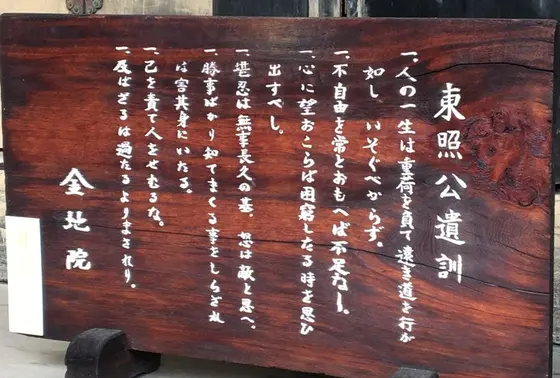 東照公遺訓
一、人の一生は重荷を負て遠き道を行が
如し いそぐべからず。
一、不自由を常とおもへば不足なし。
一、心に望おこらば困窮したる時を思ひ
出すべし。
一、堪忍は無事長久の基、怒は敵と思へ。
一、勝事ばかり知てまくる事をしらざれ
は害其身にいたる。
一、己を責て人をせむるな。
一、及ばざるは過たるよりまされり。
金地院